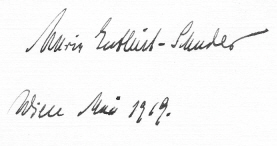 Marie Gutheil-Schoder
Wien Mai 1919.